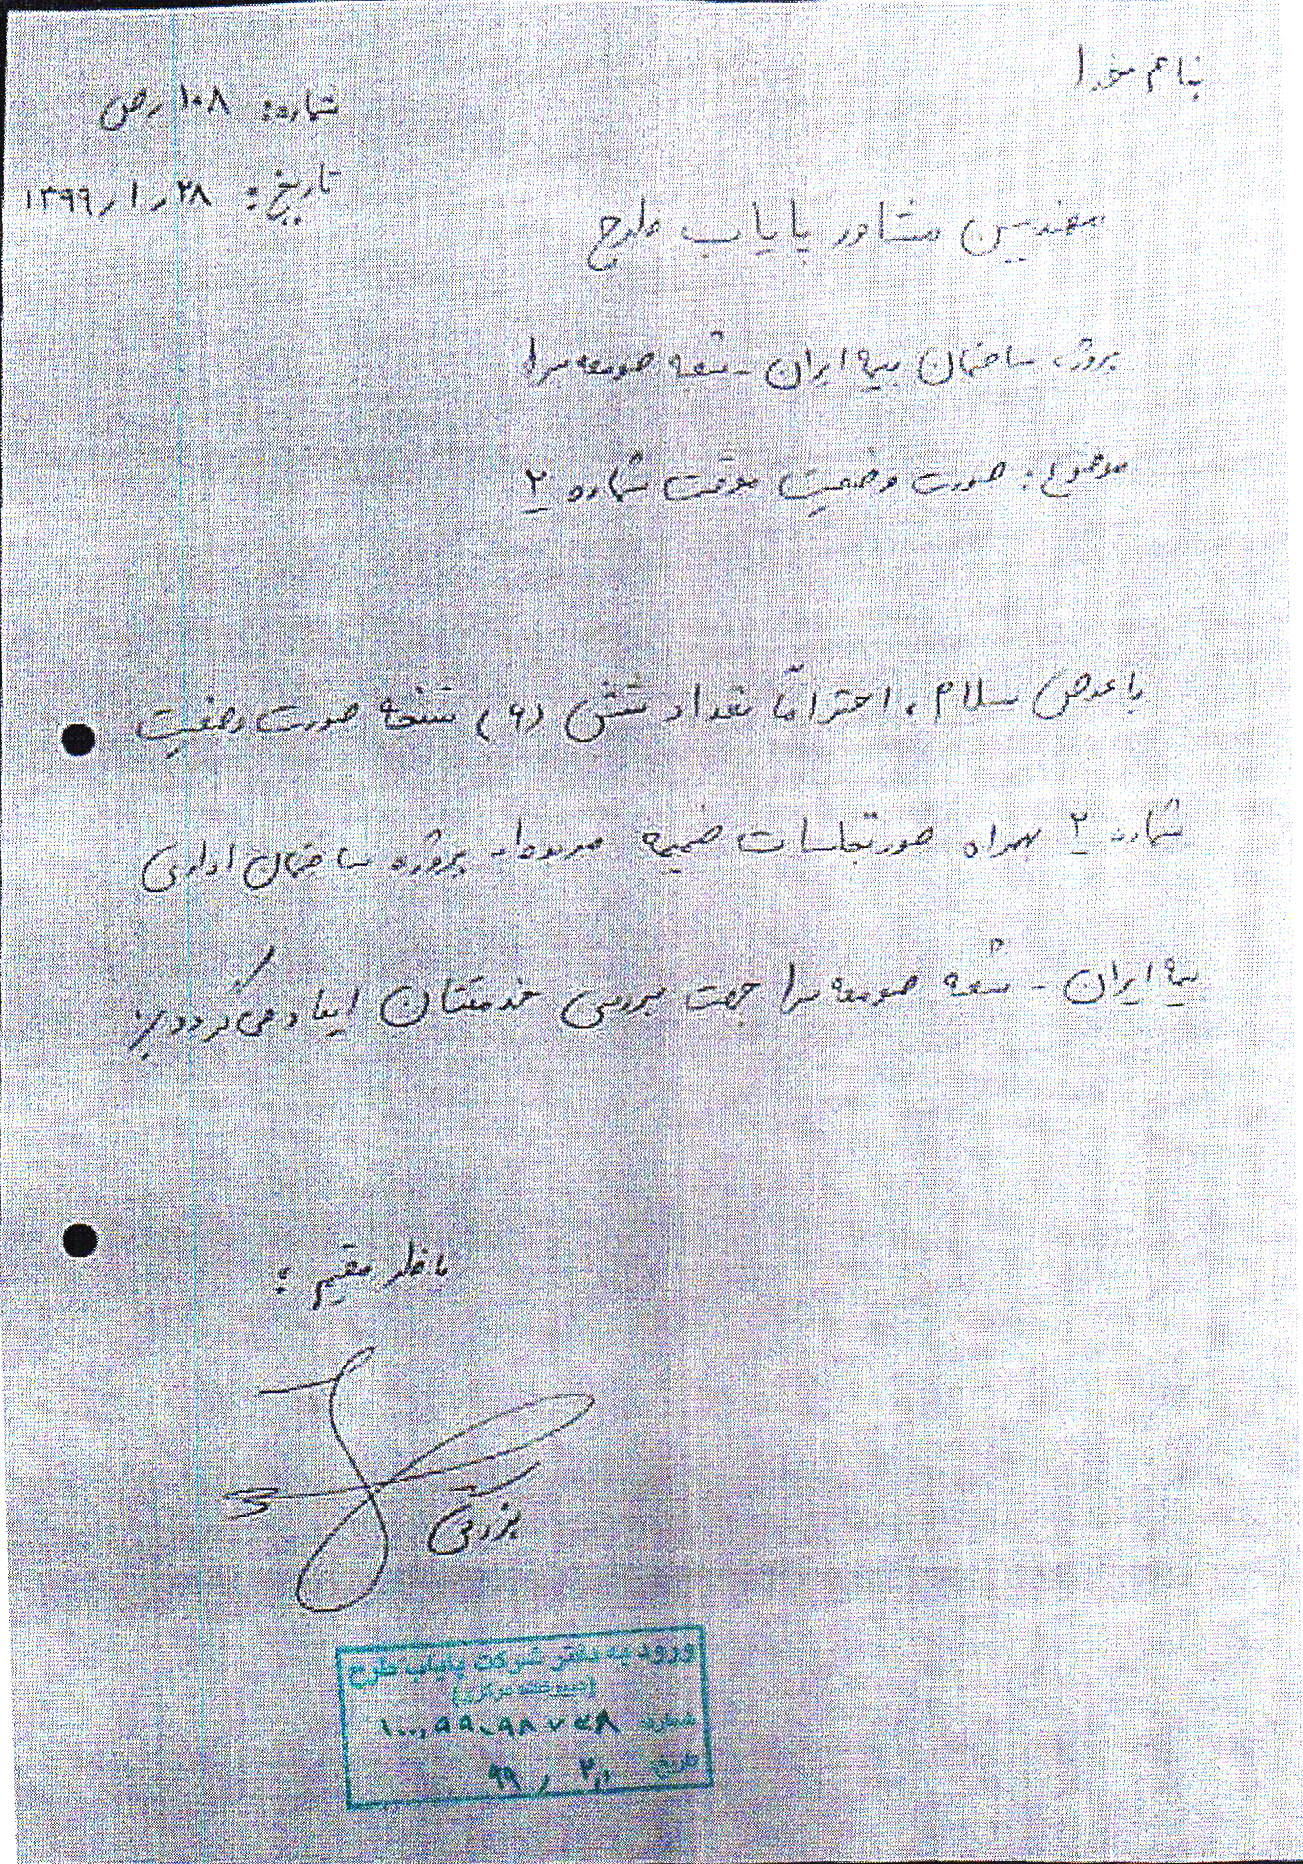 بنام خدا
شماره: ۱۰۸ رص
تاریخ: ۱۳۹۹٫۱٫۲۸
مهندسین مشاور پایاب طرح
پروژه ساختمان بیمه ایران - شعبه صومعه سرا
موضوع: صورت وضعیت موقت شماره ۲
با عرض سلام، احتراماً تعداد شش (۶) نسخه صورت وضعیت
شماره ۲ بهمراه صورتجلسات ضمیمه مربوط به پروژه ساختمان اداری
بیمه ایران - شعبه صومعه سرا جهت بررسی خدمتتان ایفاد می گردد
ناظر مقیم:
ورود به دفتر شرکت پایاب طرح
(دبیرخانه مرکزی)
شماره
تاریخ